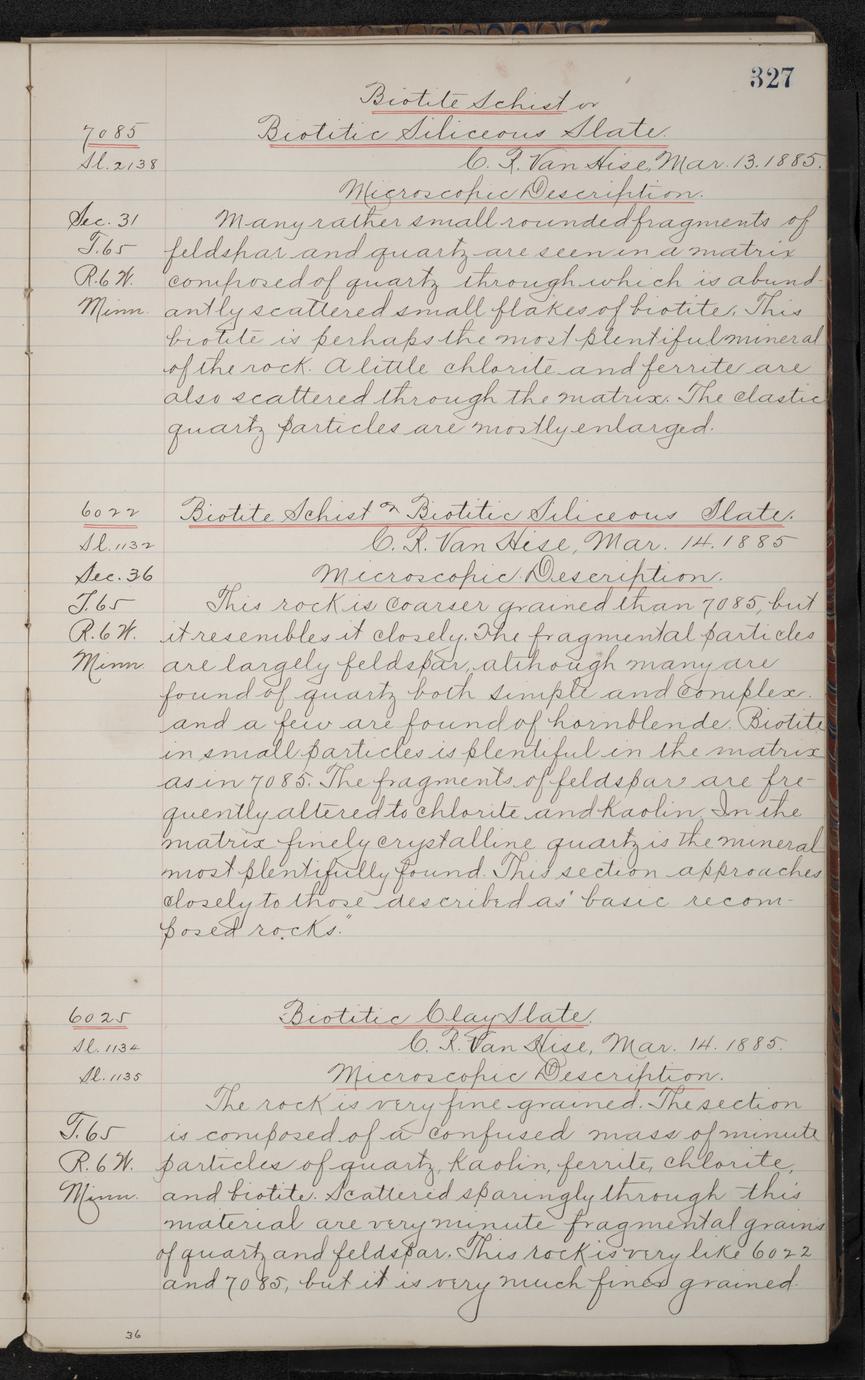 327
Biotite Schist or
7085 Biotitic Siliceous Slate.
Sl. 2138 C. R. Van Hise, Mar. 13. 1885.
Microscopic Description.
Sec. 31 Many rather small rounded fragments of
T. 65 feldspar and quartz are seen in a matrix
R. 6 W. composed of quartz through which is abund-
Minn. antly scattered small flakes of biotite. This
biotite is perhaps the most plentiful mineral
of the rock. A little chlorite and ferrite are
also scattered through the matrix. The clastic
quartz particles are mostly enlarged.
6022 Biotite Schist or Biotitic Siliceous Slate.
Sl. 1132 C. R. Van Hise, Mar. 14. 1885
Sec. 36 Microscopic Description.
T. 65 This rock is coarser grained than 7085, but
R. 6 W. it resembles it closely. The fragmental particles
Minn are largely feldspar, although many are
found of quartz both simple and complex.
and a few are found of hornblende. Biotite
in small particles is plentiful in the matrix
as in 7085. The fragments of feldspar are fre-
quently altered to chlorite and kaolin. In the
matrix finely crystalline quartz is the mineral
most plentifully found. This section approaches
closely to those described as "basic recom-
posed rocks."
6025 Biotitic Clay Slate.
Sl. 1134 C. R. Van Hise, Mar. 14. 1885.
Sl. 1135 Microscopic Description.
The rock is very fine grained. The section
T. 65 is composed of a confused mass of minute
R. 6 W. particles of quartz, kaolin, ferrite, chlorite,
Minn. and biotite. Scattered sparingly through this
material are very minute fragmental grains
of quartz and feldspar. This rock is very like 6022
and 7085, but it is very much finer grained.
36